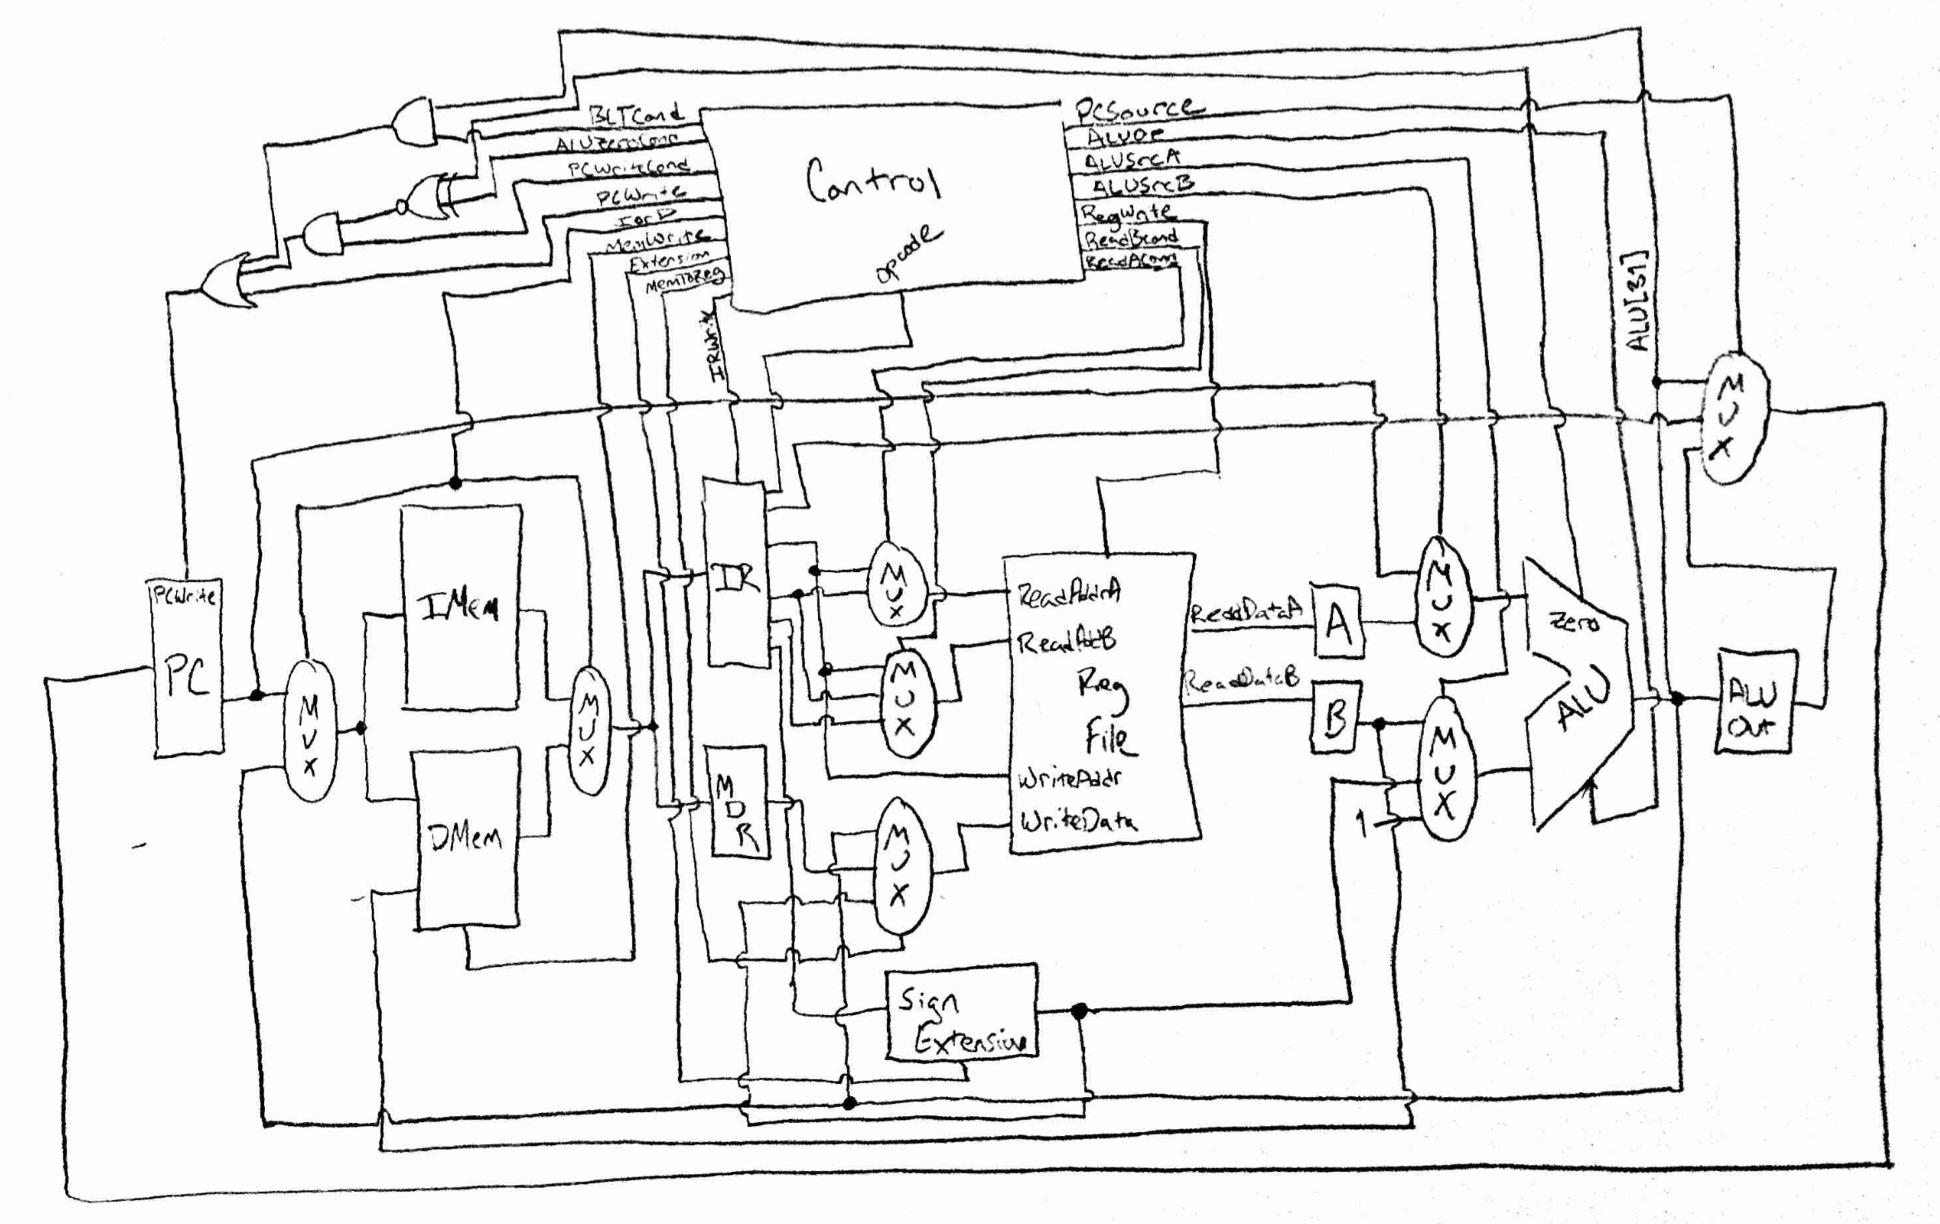 BLTCond
ALUZeroCond
PCWriteCond
PCWrite
IorD
MemWrite
Extension
MemToReg
IRWrite
Control
Opcode
PCSource
ALUOp
ALUSrcA
ALUSrcB
RegWrite
ReadBCond
ReadACond
ALU[31]
MUX
PCWrite
PC
MUX
IMem
DMem
MUX
IR
MDR
MUX
MUX
MUX
ReadAddrA
ReadAddB
Reg
File
WriteAddr
WriteData
ReadDataA
ReadDataB
A
B
MUX
MUX
1
Zero
ALU
ALU
Out
Sign
Extension